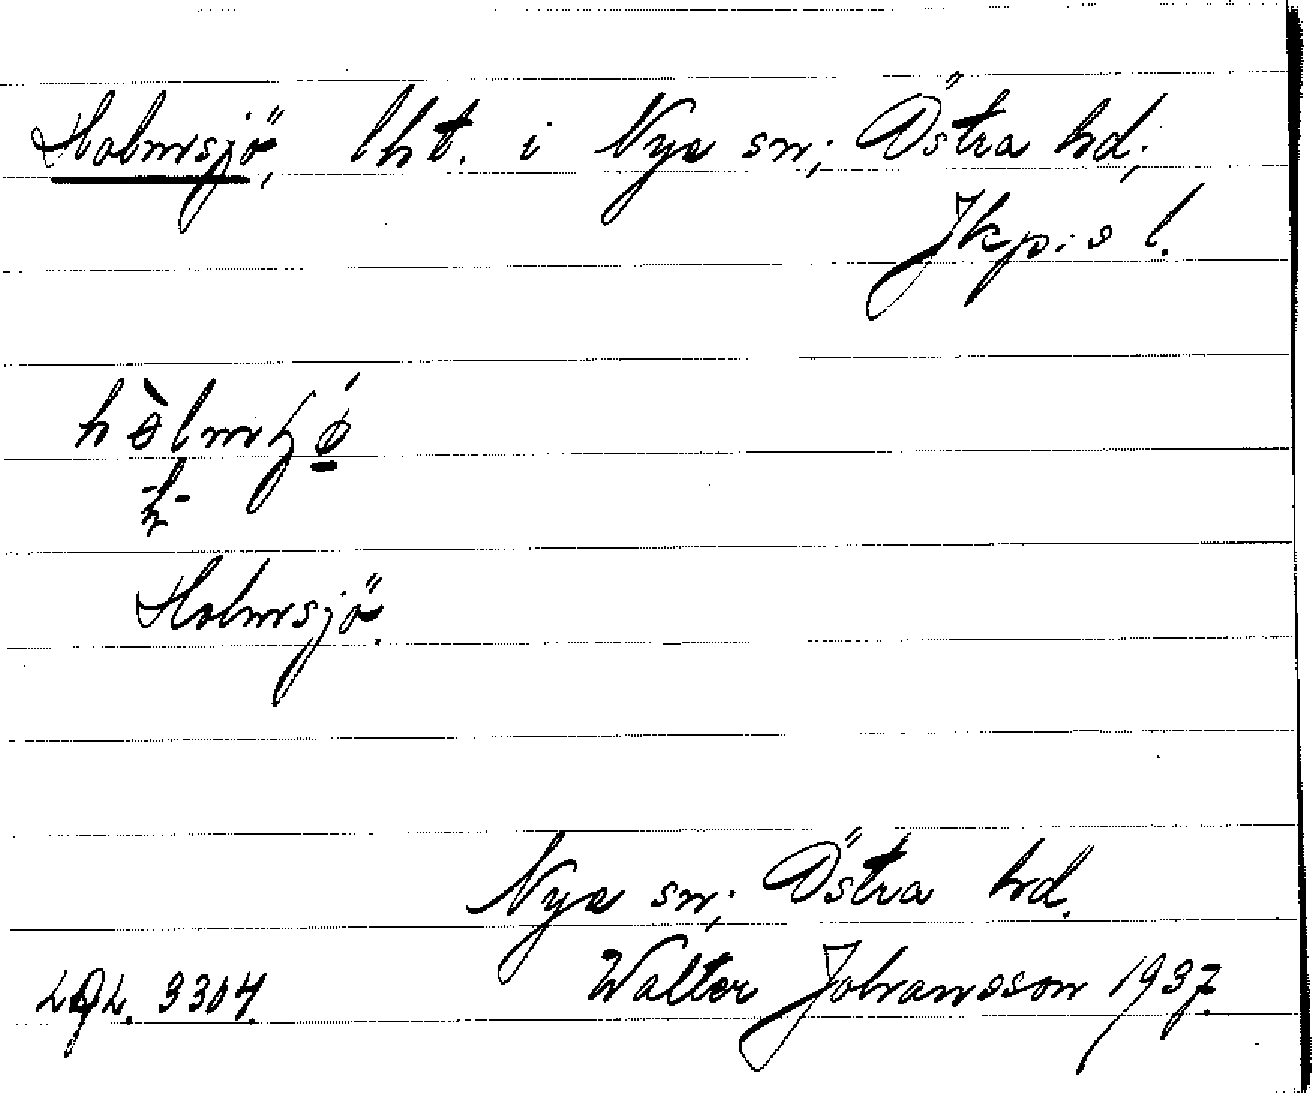 Holmsjö, lht. i Nye sn; Östra hd;
Jkp:s l.
Holmsjö.
Nye sn; Östra hd.
Walter Johansson 1937.
3304.